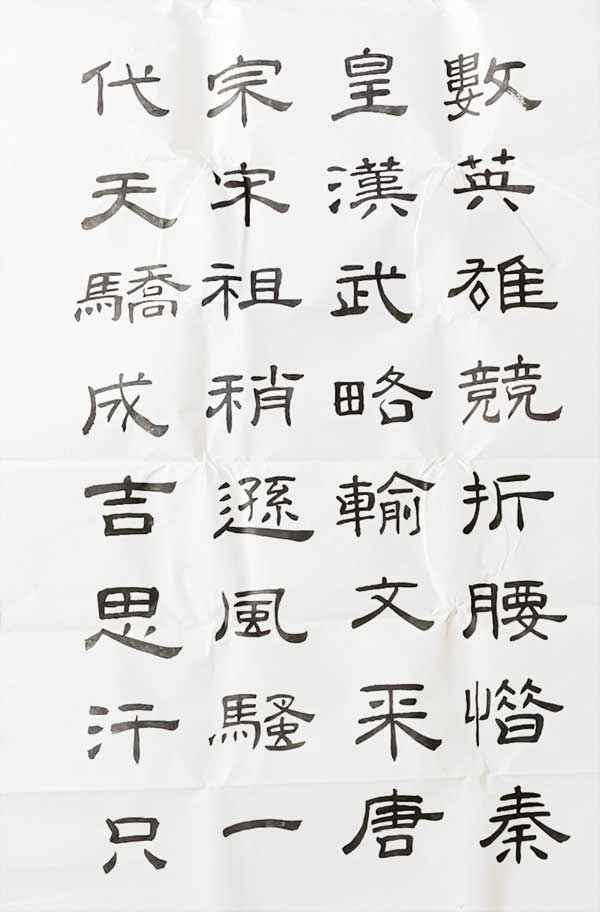 數英雄競折腰惜秦
皇漢武略輸文采唐
宗宋祖稍遜風騷一
代天驕成吉思汗只